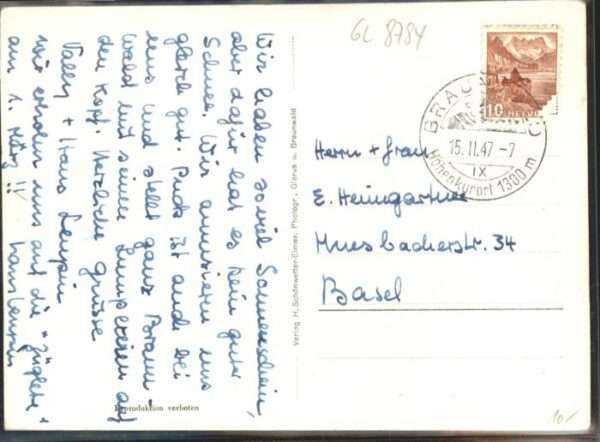 GL 8784
Wir haben soviel Sonnenschein,
aber dafür hat es kein guter
Schnee. Wir amüsieren uns
gleich gut. Puck ist auch bei
uns und stellt ganz Braun-
wald mit seinen Lumpereien auf
den Kopf. Herzliche Grüsse
Vally + Hans
wir erholen uns auf die "Züglete"
am 1. März !!
Reproduktion verboten
Verlag H. Schönwetter-Elmer, Photogr., Glarus u. Braunwald
10
HELVETIA
BRAUNWALD
15.II.47.-7
IX
Höhenkurort 1300 m
Herrn + Frau
E. Heimgartner
Muesbacherstr. 34
Basel
10/-